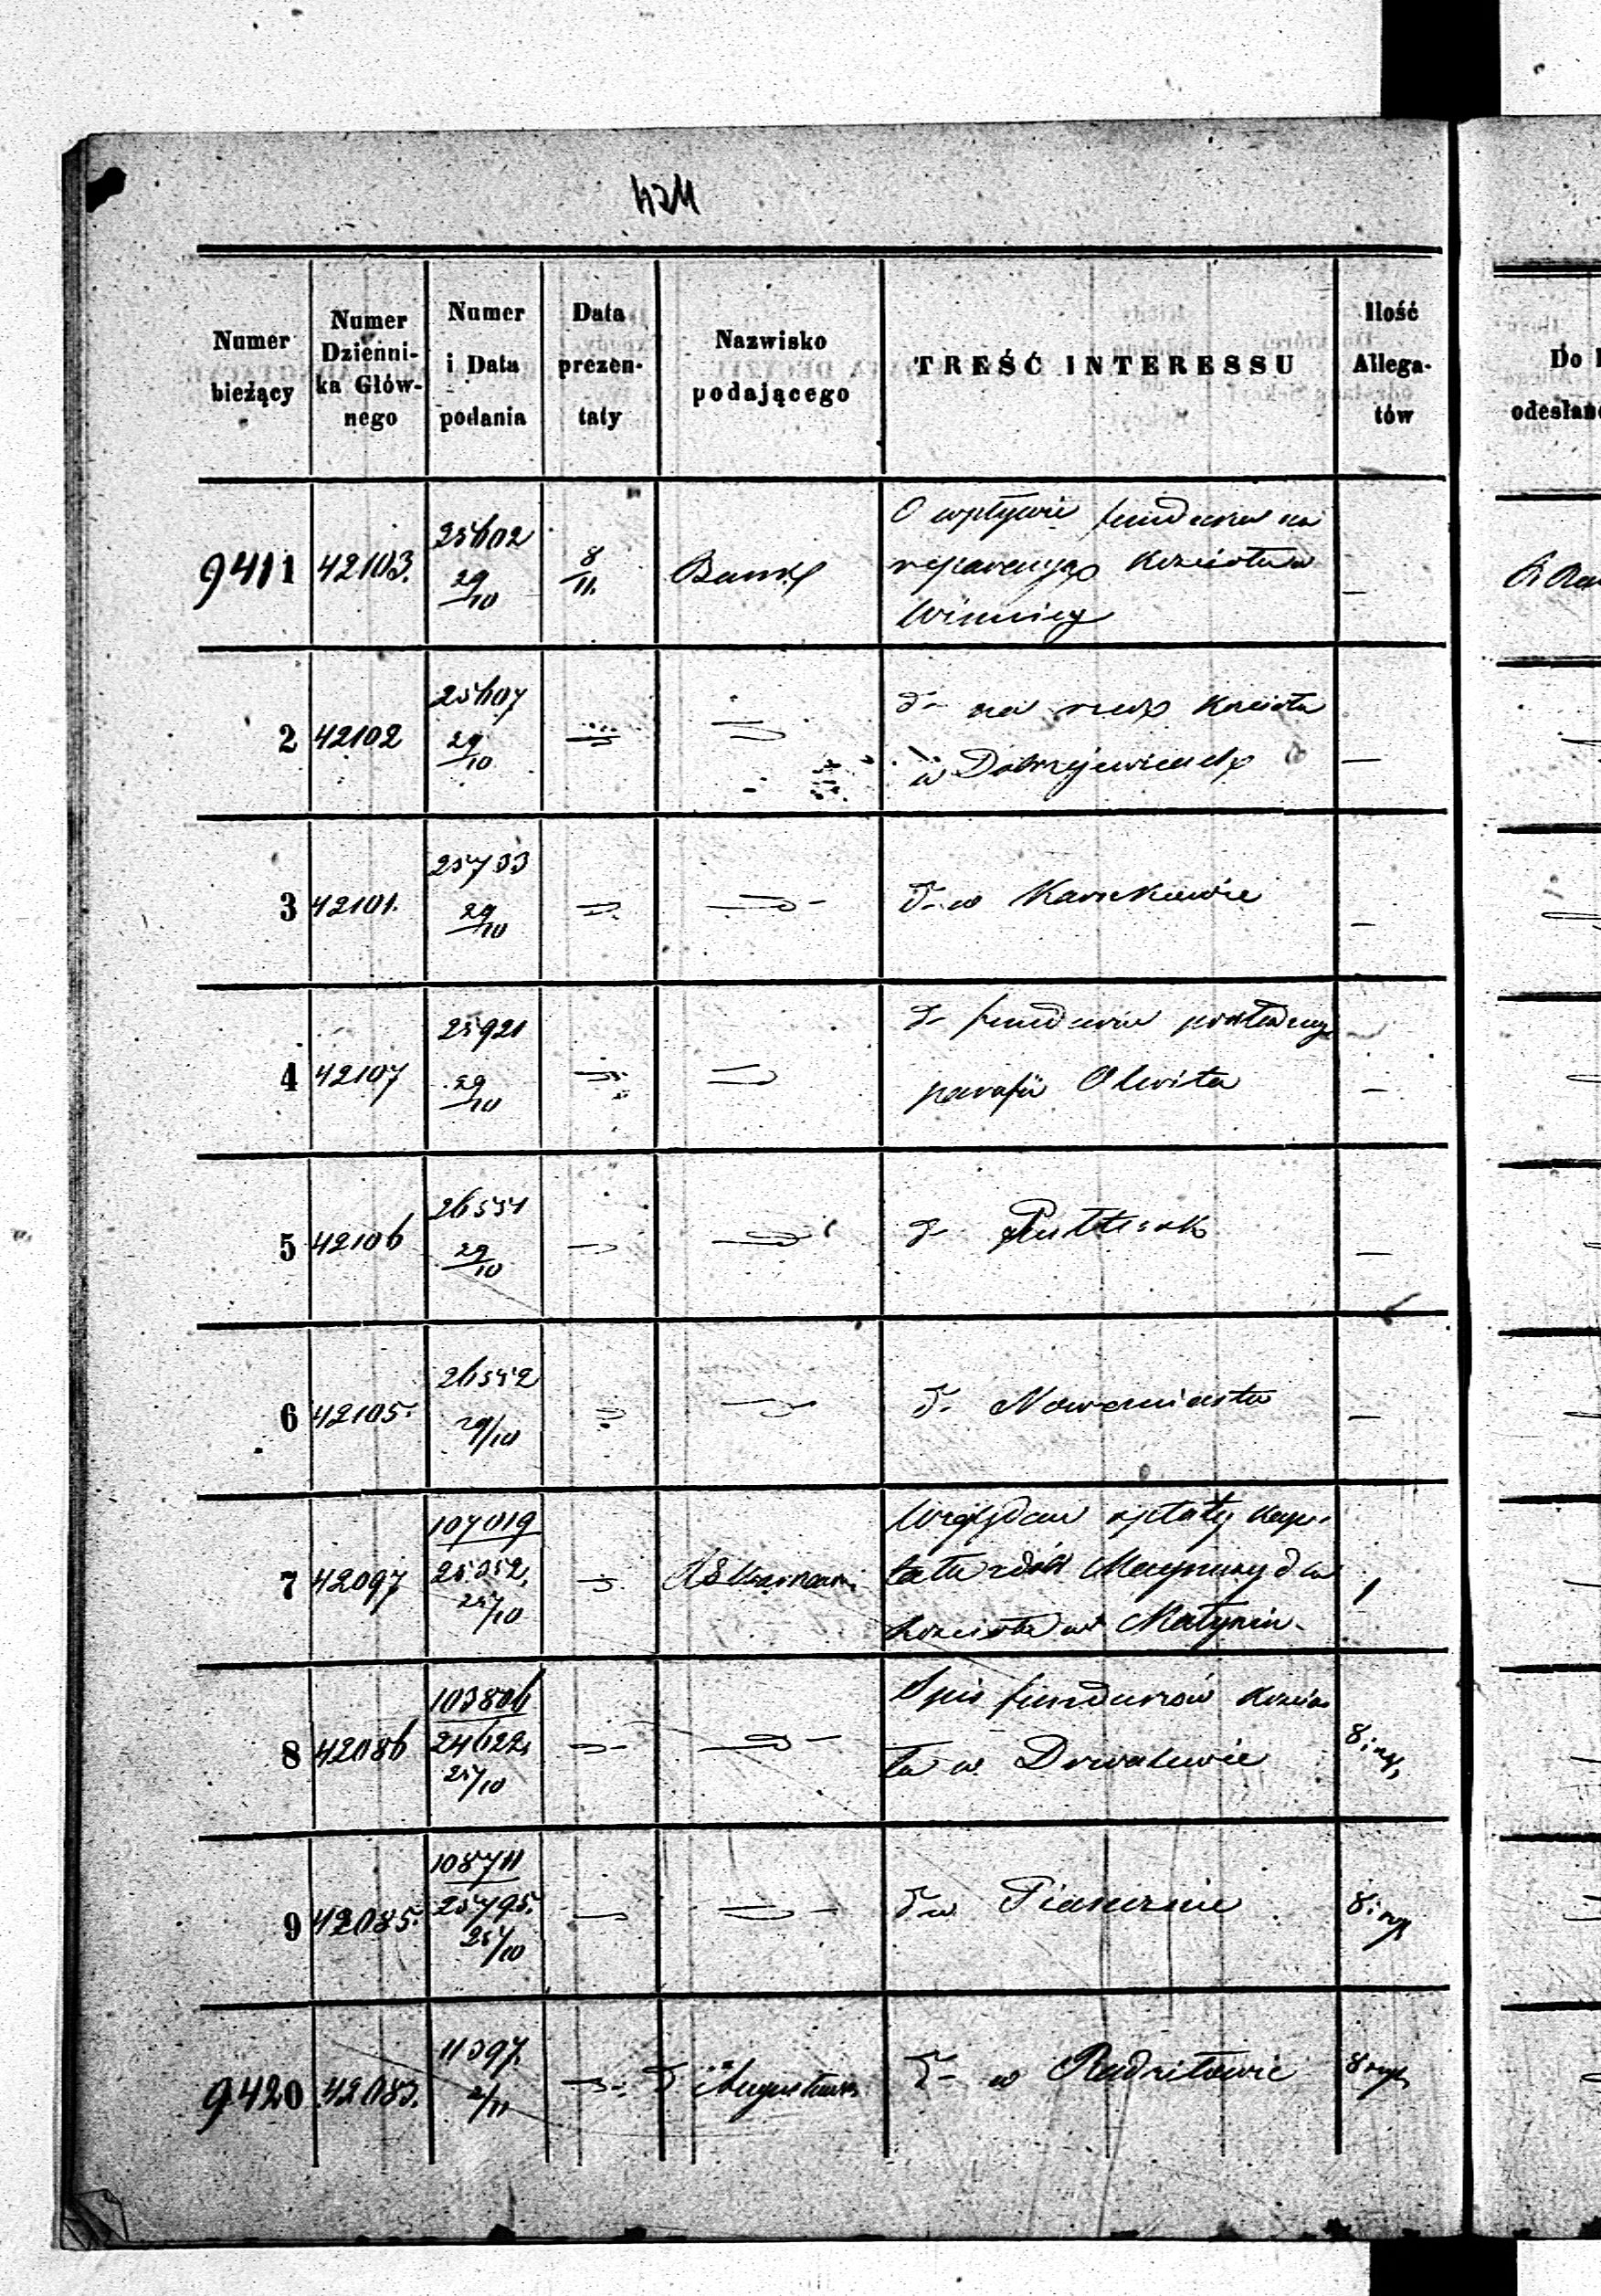 Numer bieżący
Numer Dzienni-
ka Głów-
nego
Numer i Data podania
Data prezen-
taty
Nazwisko podającego
TREŚĆ INTERESSU
Ilość Allega-
tów
9411 42103. 25602 29/10 8/11. Bank
O wpływie funduszu na
reparacyą Kościoła w
Winnicy
2 42102 25607 29/10
d- na rzecz Kościoła
w Dobrzejewicach
3 42101. 25733 29/10
d- w Karnkowie
4 42107 25921 29/10
d- funduszu
parafii Olwita
5 42106 26551 29/10
d- Pułtusk
6 42105. 26552 29/10
d- Nowemiasto
7 42097 107019 25352. 25/10
Względem spłaty kapi-
tału z dóbr dla
Kościoła w 1
8 42086 103806 24622. 25/10
Spis funduszów Kościo
ła w Drwalewie
9 42085. 108711 25795. 25/10
d- w Piasecznie
9420 42083. 11397. 2/11 Augustow
d- w Radziłowie
Do
odesłano